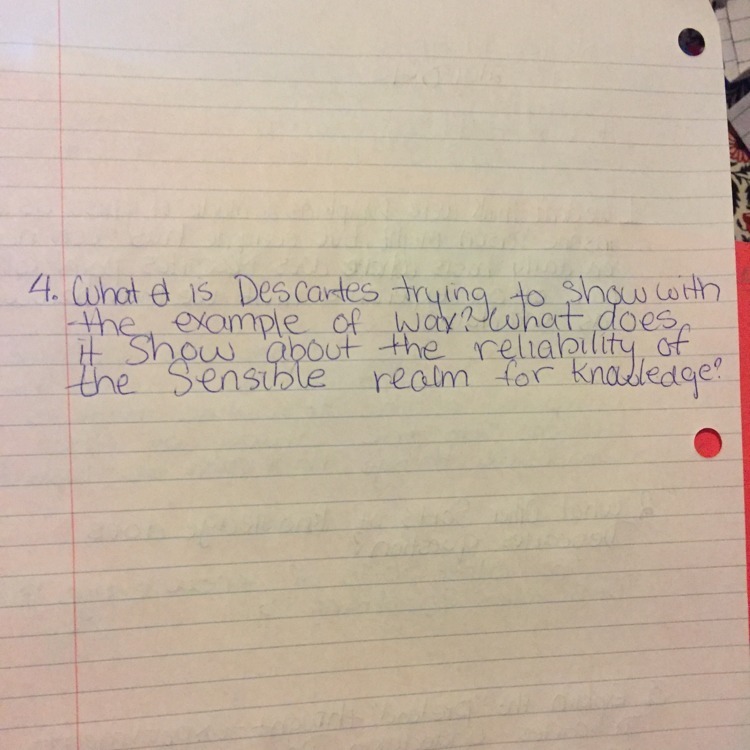 4. What is Descartes trying to show with
the example of wax? What does
it show about the reliability of
the sensible realm for knowledge?